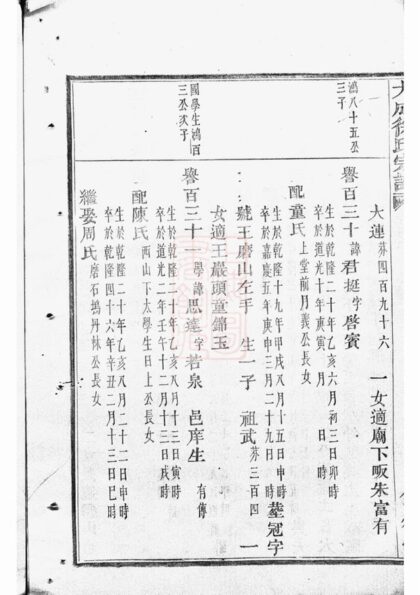 大成徐氏宗譜
鴻八十五公
三子
國學生鴻百
三公次子
大連 芬四百九十六 一女適廟下畈朱富有
譽百三十 諱君挺字啓賓
生於乾隆二十年乙亥六月初三日卯時
卒於道光十年庚寅 月 日 時
配童氏 上堂前月義公長女
生於乾隆十九年甲戌八月十五日申時
卒於嘉慶五年庚申三月二十九日時 塟冠字
號王磨山左手 生一子 祖武 芬三百四 一
女適王嚴頭童錦玉
譽百三十一 學諱思遠字若泉 邑庠生 有傳
生於乾隆二十年乙亥八月十三日寅時
卒於道光二年壬午十二月十三日戌時
配陳氏 西山下太學生日上公長女
生於乾隆二十年乙亥八月二十二日申時
卒於乾隆四十六年辛丑二月十三日巳時
繼娶周氏 磨石塢丹林公長女